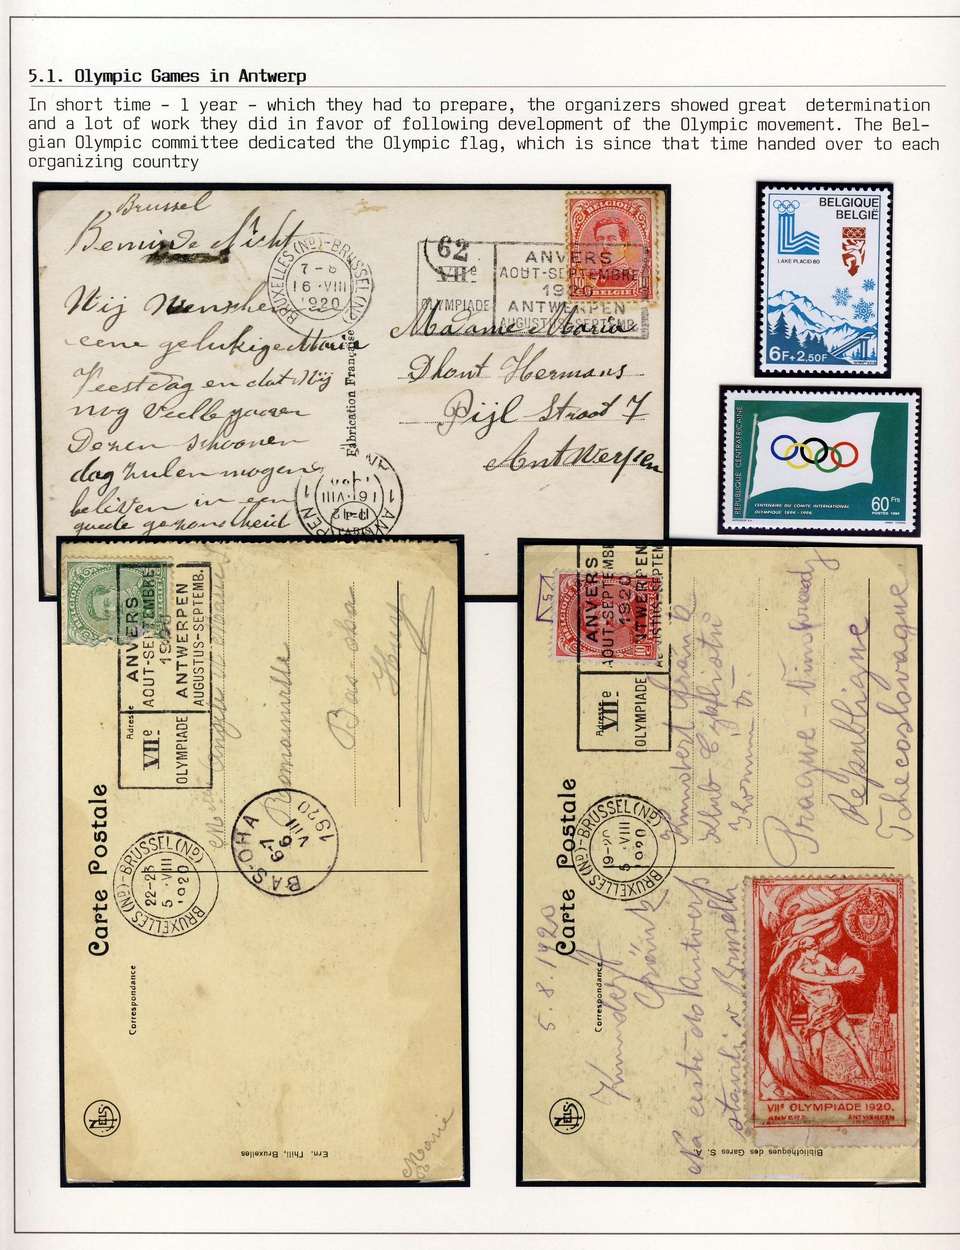 5.1. Olympic Games in Antwerp
In short time - 1 year - which they had to prepare, the organizers showed great determination
and a lot of work they did in favor of following development of the Olympic movement. The Bel-
gian Olympic committee dedicated the Olympic flag, which is since that time handed over to each
organizing country
Brussel
Beminde Nicht
Wij Wenschen
eene gelukige Maria
Feestdag en dat Wij
nog veele jaaren
Dezen schoonen
dag zulen mogen
beliven in een
goede gezondheid
BRUXELLES (Nd)-BRUSSEL (Nd)
7-8
16·VIII
1920
62
VIIe
OLYMPIADE
ANVERS
AOUT-SEPTEMBRE
1920
ANTWERPEN
AUGUSTUS-SEPTEMB.
BELGIQUE
10 10
BELGIE
Fabrication Française
Madame Maria
Dhont Hermans
Pijl Straat 7
Antwerpen
16·VIII
BELGIQUE
BELGIË
LAKE PLACID 80
6F+2,50F
REPUBLIQUE CENTRAFRICAINE
CENTENAIRE DU COMITE INTERNATIONAL
OLYMPIQUE 1894-1994
60 Frs
POSTES 1994
BELGIQUE
ANVERS
AOUT-SEPTEMBRE
1920
ANTWERPEN
AUGUSTUS-SEPTEMB.
VIIe
OLYMPIADE
Adresse
Bas oha
Huy
Carte Postale
BRUXELLES (Nd)-BRUSSEL (Nd)
22-23
5·VIII
1920
BAS-OHA
6-7
6
VIII
1920
Correspondance
NELS
Ern. Thill, Bruxelles
Marie
5
ANVERS
AOUT-SEPTEMBRE
1920
ANTWERPEN
AUGUSTUS-SEPTEMB.
VIIe
OLYMPIADE
Adresse
Klub
Prague - Vinohrady
République
Tchecoslovaque
Carte Postale
BRUXELLES (Nd)-BRUSSEL (Nd)
19-20
5·VIII
1920
5. 8. 1920
Correspondance
Na cestě do Antverp
v Bruselu
NELS
Bibliothèques des Gares S. A.
VIIe OLYMPIADE 1920.
ANVERS ANTWERPEN